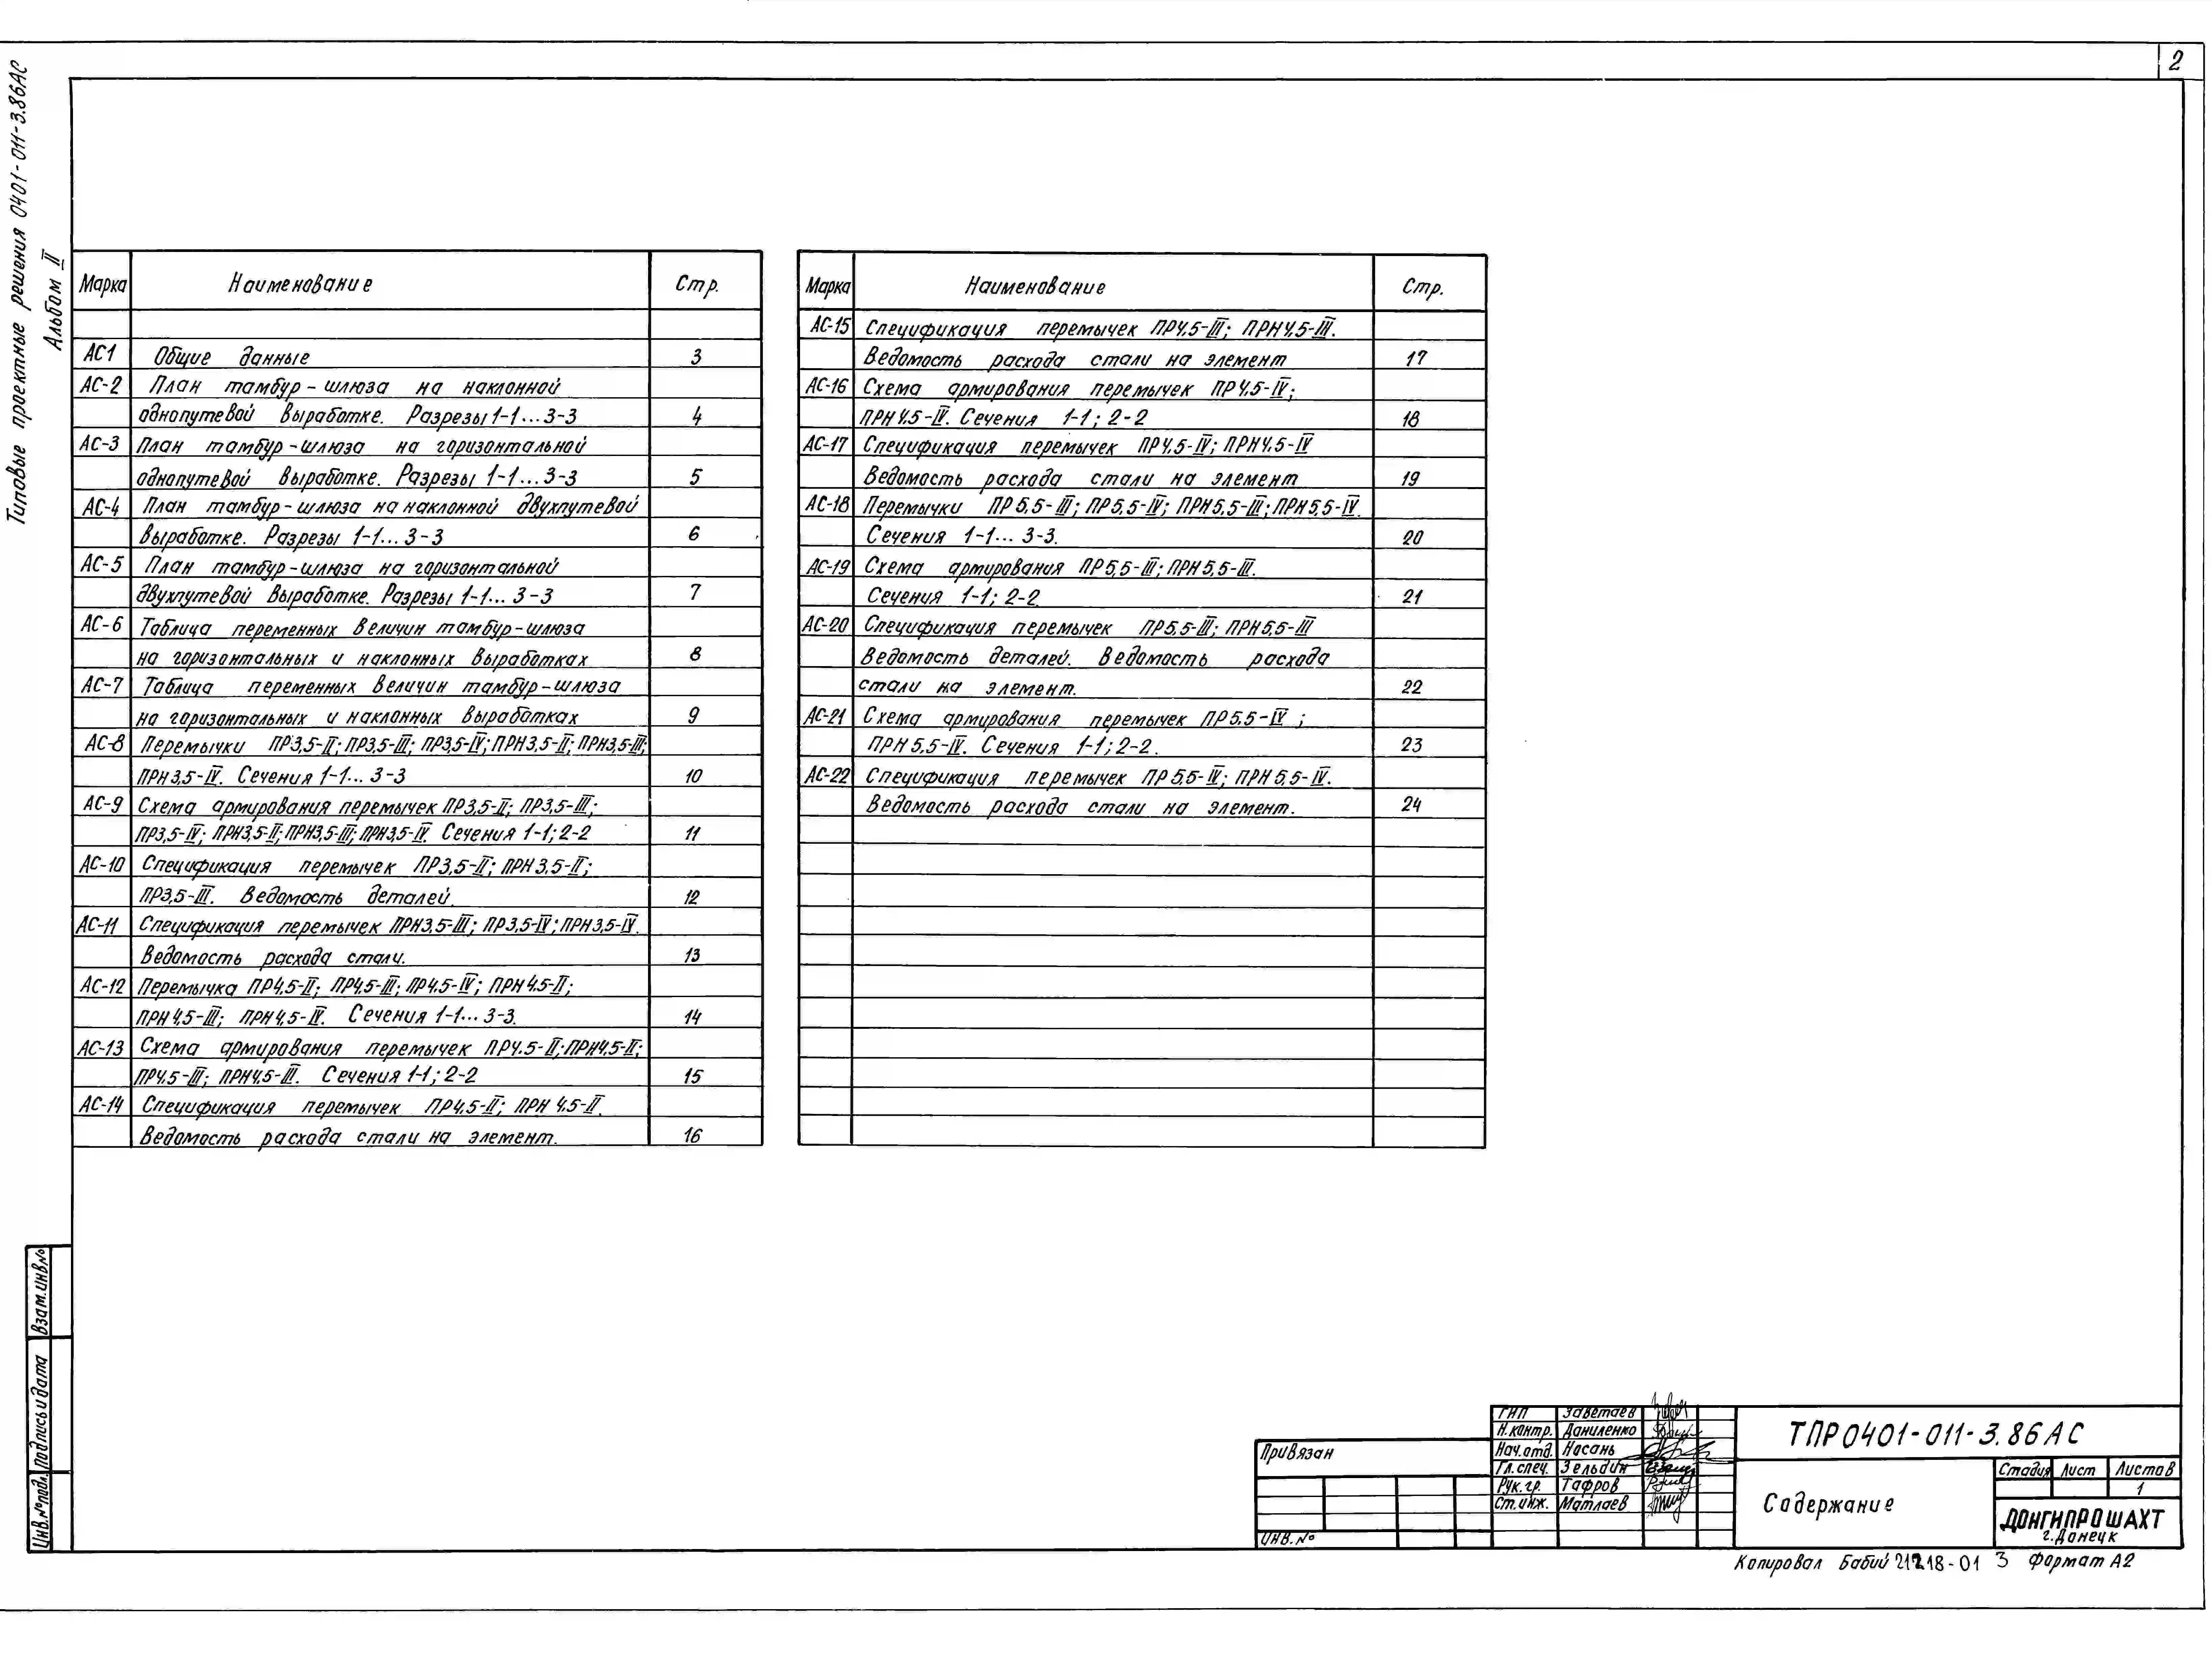 2
Типовые проектные решения 0401-011-3.86АС
Альбом II
Марка Наименование Стр.
АС1 Общие данные 3
АС-2 План тамбур-шлюза на наклонной
однопутевой выработке. Разрезы 1-1...3-3 4
АС-3 План тамбур-шлюза на горизонтальной
однопутевой выработке. Разрезы 1-1...3-3 5
АС-4 План тамбур-шлюза на наклонной двухпутевой
выработке. Разрезы 1-1...3-3 6
АС-5 План тамбур-шлюза на горизонтальной
двухпутевой выработке. Разрезы 1-1...3-3 7
АС-6 Таблица переменных величин тамбур-шлюза
на горизонтальных и наклонных выработках 8
АС-7 Таблица переменных величин тамбур-шлюза
на горизонтальных и наклонных выработках 9
АС-8 Перемычки ПР3,5-II; ПР3,5-III; ПР3,5-IV; ПРН3,5-II; ПРН3,5-III;
ПРН3,5-IV. Сечения 1-1...3-3 10
АС-9 Схема армирования перемычек ПР3,5-II; ПР3,5-III;
ПР3,5-IV; ПРН3,5-II; ПРН3,5-III; ПРН3,5-IV. Сечения 1-1; 2-2 11
АС-10 Спецификация перемычек ПР3,5-II; ПРН3,5-II;
ПР3,5-III. Ведомость деталей. 12
АС-11 Спецификация перемычек ПРН3,5-III; ПР3,5-IV; ПРН3,5-IV.
Ведомость расхода стали. 13
АС-12 Перемычка ПР4,5-II; ПР4,5-III; ПР4,5-IV; ПРН4,5-II;
ПРН4,5-III; ПРН4,5-IV. Сечения 1-1...3-3. 14
АС-13 Схема армирования перемычек ПР4.5-II; ПРН4,5-II;
ПР4,5-III; ПРН4,5-III. Сечения 1-1; 2-2 15
АС-14 Спецификация перемычек ПР4,5-II; ПРН 4,5-II.
Ведомость расхода стали на элемент. 16
Марка Наименование Стр.
АС-15 Спецификация перемычек ПР4,5-III; ПРН4,5-III.
Ведомость расхода стали на элемент 17
АС-16 Схема армирования перемычек ПР4,5-IV;
ПРН4,5-IV. Сечения 1-1; 2-2 18
АС-17 Спецификация перемычек ПР4,5-IV; ПРН4,5-IV
Ведомость расхода стали на элемент 19
АС-18 Перемычки ПР5,5-III; ПР5,5-IV; ПРН5,5-III; ПРН5,5-IV.
Сечения 1-1...3-3. 20
АС-19 Схема армирования ПР5,5-III; ПРН5,5-III.
Сечения 1-1; 2-2 21
АС-20 Спецификация перемычек ПР5,5-III; ПРН5,5-III
Ведомость деталей. Ведомость расхода
стали на элемент. 22
АС-21 Схема армирования перемычек ПР5,5-IV;
ПРН5,5-IV. Сечения 1-1; 2-2. 23
АС-22 Спецификация перемычек ПР5,5-IV; ПРН5,5-IV.
Ведомость расхода стали на элемент. 24
Взам.инв.№
Подпись и дата
Инв.№ подл.
Привязан
Инв.№
ГИП Заветаев
Н.контр. Даниленко
Нач.отд. Насань
Гл.спец. Зельдин
Рук.гр. Тафров
Ст.инж. Матлаев
ТПР0401-011-3.86АС
Содержание
Стадия Лист Листов
1
ДОНГИПРОШАХТ
г.Донецк
Копировал Бабий 21218-01 3 Формат А2